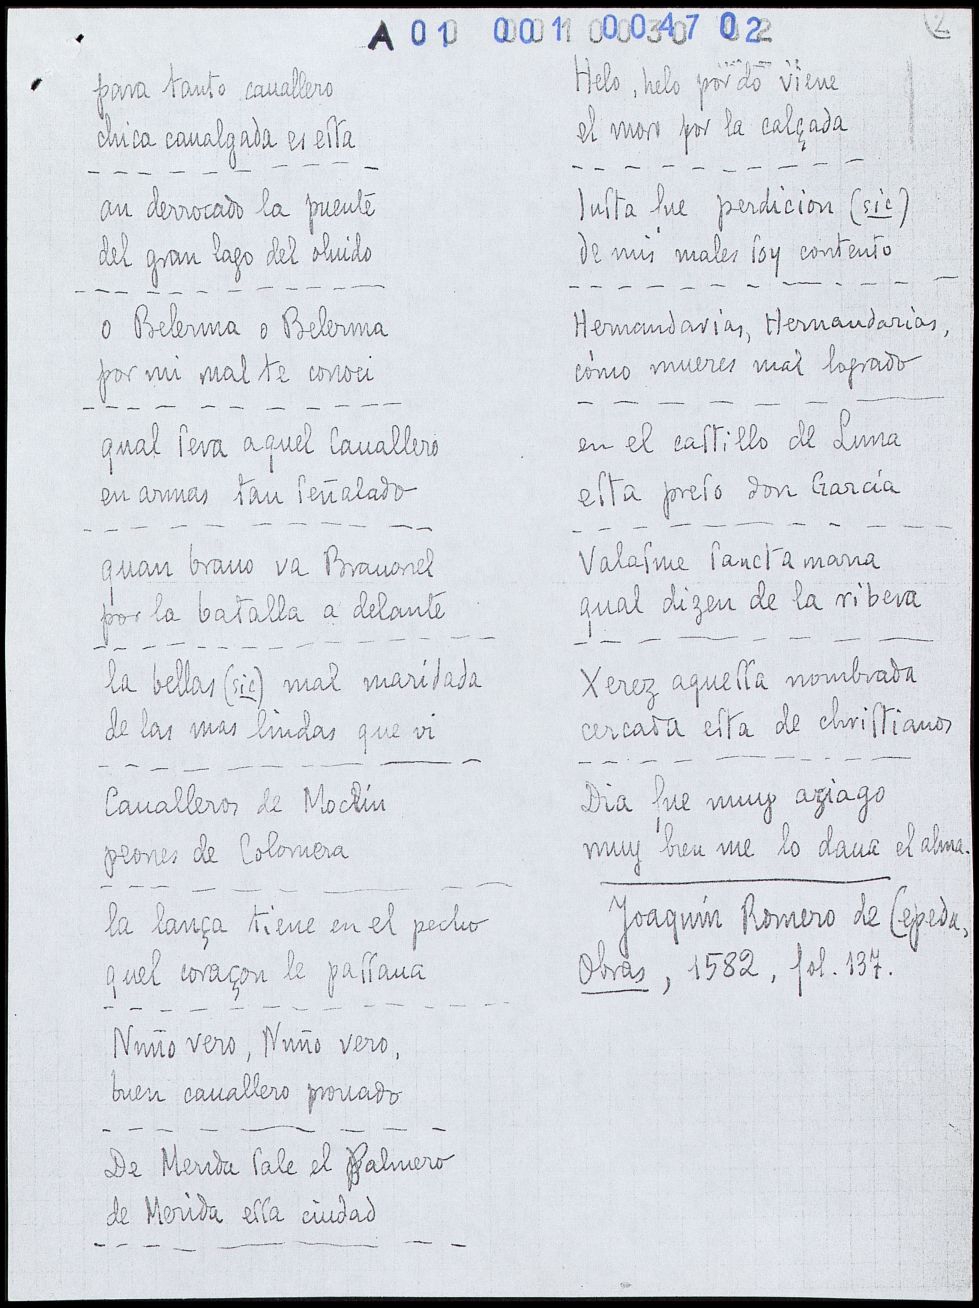 A 01 001 0047 02
2
para tanto cauallero
chica caualgada es eſta
an derrocado la puente
del gran lago del oluido
o Belerma o Belerma
por mi mal te conoci
qual ſeva aquel Cauallero
en armas tan ſeñalado
quan brauo va Brauonel
por la batalla a delante
la bellas (sic) mal maridada
de las mas lindas que vi
Caualleros de Moclín
peones de Colomera
la lança tiene en el pecho
quel coraçon le paſſaua
Nuño vero, Nuño vero,
buen cauallero prouado
De Merida ſale el Palmero
de Merida eſſa ciudad
Helo, helo por do viene
el moro por la calçada
Iuſta fue perdicion (sic)
de mis males ſoy contento
Hernandarias, Hernandarias,
cómo mueres mal logrado
en el caſtillo de Luna
eſta preſo don García
Valaſme ſancta maria
qual dizen de la ribera
Xerez aqueſſa nombrada
cercada eſta de chriſtianos
Dia fue muy aziago
muy bien me lo daua el alma.
Joaquín Romero de Cepeda,
Obras, 1582, fol. 137.